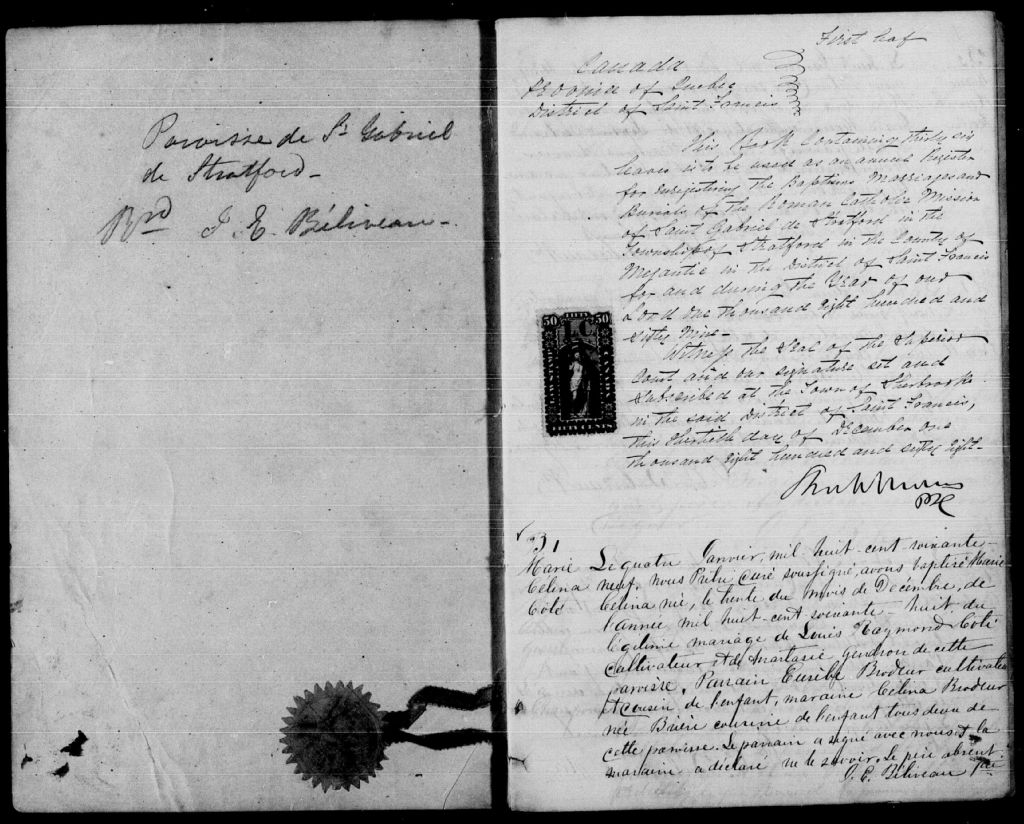 Paroisse de St Gabriel
de Stratford-
J. E. Béliveau-
First leaf
Canada
Province of Quebec
District of Saint Francis
This Book Containing thirty six
leaves is to be used as an annual Register
for enregistering the Baptisms Marriages and
Burials of the Roman Catholic Mission
of Saint Gabriel de Stratford in the
Township of Stratford in the County of
Megantic in the District of Saint Francis
for and during the Year of our
Lord One thousand Eight hundred and
Sixty Nine-
Witness the Seal of the Superior
Court and our signature set and
Subscribed at the Town of Sherbrooke
in the said District of Saint Francis,
this thirtieth day of December One
thousand Eight hundred and sixty Eight-
50 FIFTY 50
L.C.
FIFTY CENTS
B 1
Marie
Celina
Côté
Le quatre Janvier, mil huit-cent-soixante-
neuf, nous Prêtre Curé soussigné, avons baptisé Marie
Celina née, le trente du mois de Décembre, de
l'année mil huit-cent soixante-huit du
légitime mariage de Louis Raymond Coté
cultivateur et de Anastasie Gendron de cette
paroisse. Parrain Eusèbe Brodeur cultivateur
et cousin de l'enfant, maraine Celina Brodeur
née Brière cousine de l'enfant tous deux de
cette paroisse. Le parrain a signé avec nous et la
maraine a déclaré ne le savoir. Le père absent.
J. E. Béliveau Ptre